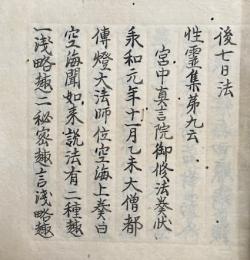 後七日法
性靈集第九云
宮中真言院御修法奏狀
承和元年十一月乙未大僧都
傳燈大法師位空海上奏曰
空海聞如來說法有二種趣
一淺略趣二秘密趣言淺略趣